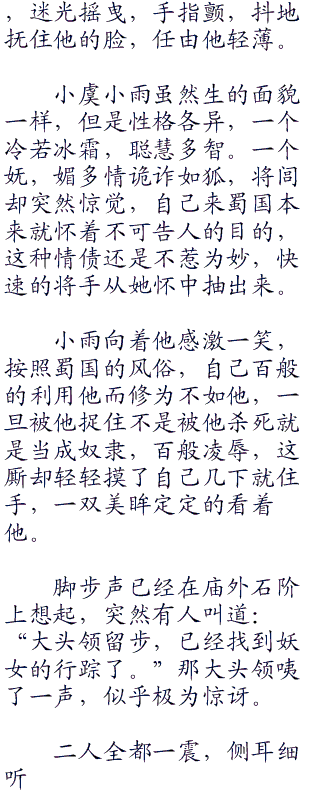 ，迷光摇曳，手指颤，抖地
抚住他的脸，任由他轻薄。
小虞小雨虽然生的面貌
一样，但是性格各异，一个
冷若冰霜，聪慧多智。一个
妩，媚多情诡诈如狐，将闾
却突然惊觉，自己来蜀国本
来就怀着不可告人的目的，
这种情债还是不惹为妙，快
速的将手从她怀中抽出来。
小雨向着他感激一笑，
按照蜀国的风俗，自己百般
的利用他而修为不如他，一
旦被他捉住不是被他杀死就
是当成奴隶，百般凌辱，这
厮却轻轻摸了自己几下就住
手，一双美眸定定的看着
他。
脚步声已经在庙外石阶
上想起，突然有人叫道：
“大头领留步，已经找到妖
女的行踪了。”那大头领咦
了一声，似乎极为惊讶。
二人全都一震，侧耳细
听